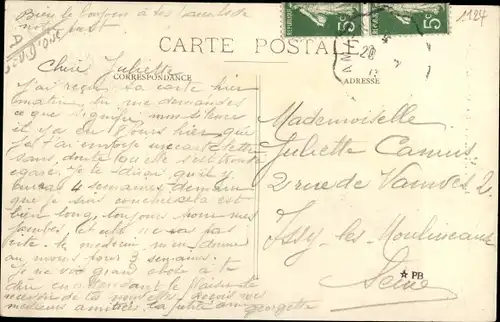 Bien le bonjour à tes
1124
5c
5c
CARTE POSTALE
Chère Juliette
CORRESPONDANCE
ADRESSE
J'ai reçu ta carte hier
matin tu me demandes
ce que signifie mon silence
il y a 8 jours hier que
je t'ai une carte lettre
sans doute qu'elle s'est
égarée. Je te dirai qu'il y
4 semaines demain
que je suis couchée cela est
bien long, toujours pour mes
jambes, et ne va pas
vite. le medecin m'en donne
au moins pour 3 semaines.
Je ne vois grand chose à te
dire en attendant le plaisir de
recevoir de tes nouvelles reçois mes
meilleurs amitiés ta petite amie
Georgette
Mademoiselle
Juliette Camus
2 rue de Vanves 2
Issy-les-Moulineaux
Seine
PB